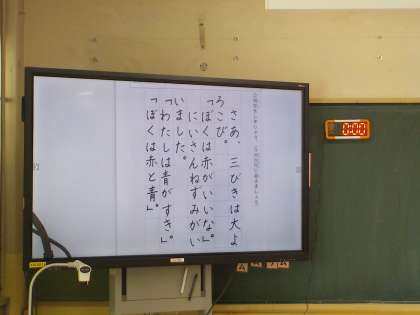 さあ、三びきは大よ
ろこび。
「ぼくは赤がいいな。」
にいさんねずみがい
いました。
「わたしは青がすき。」
「ぼくは赤と青。」
0:00